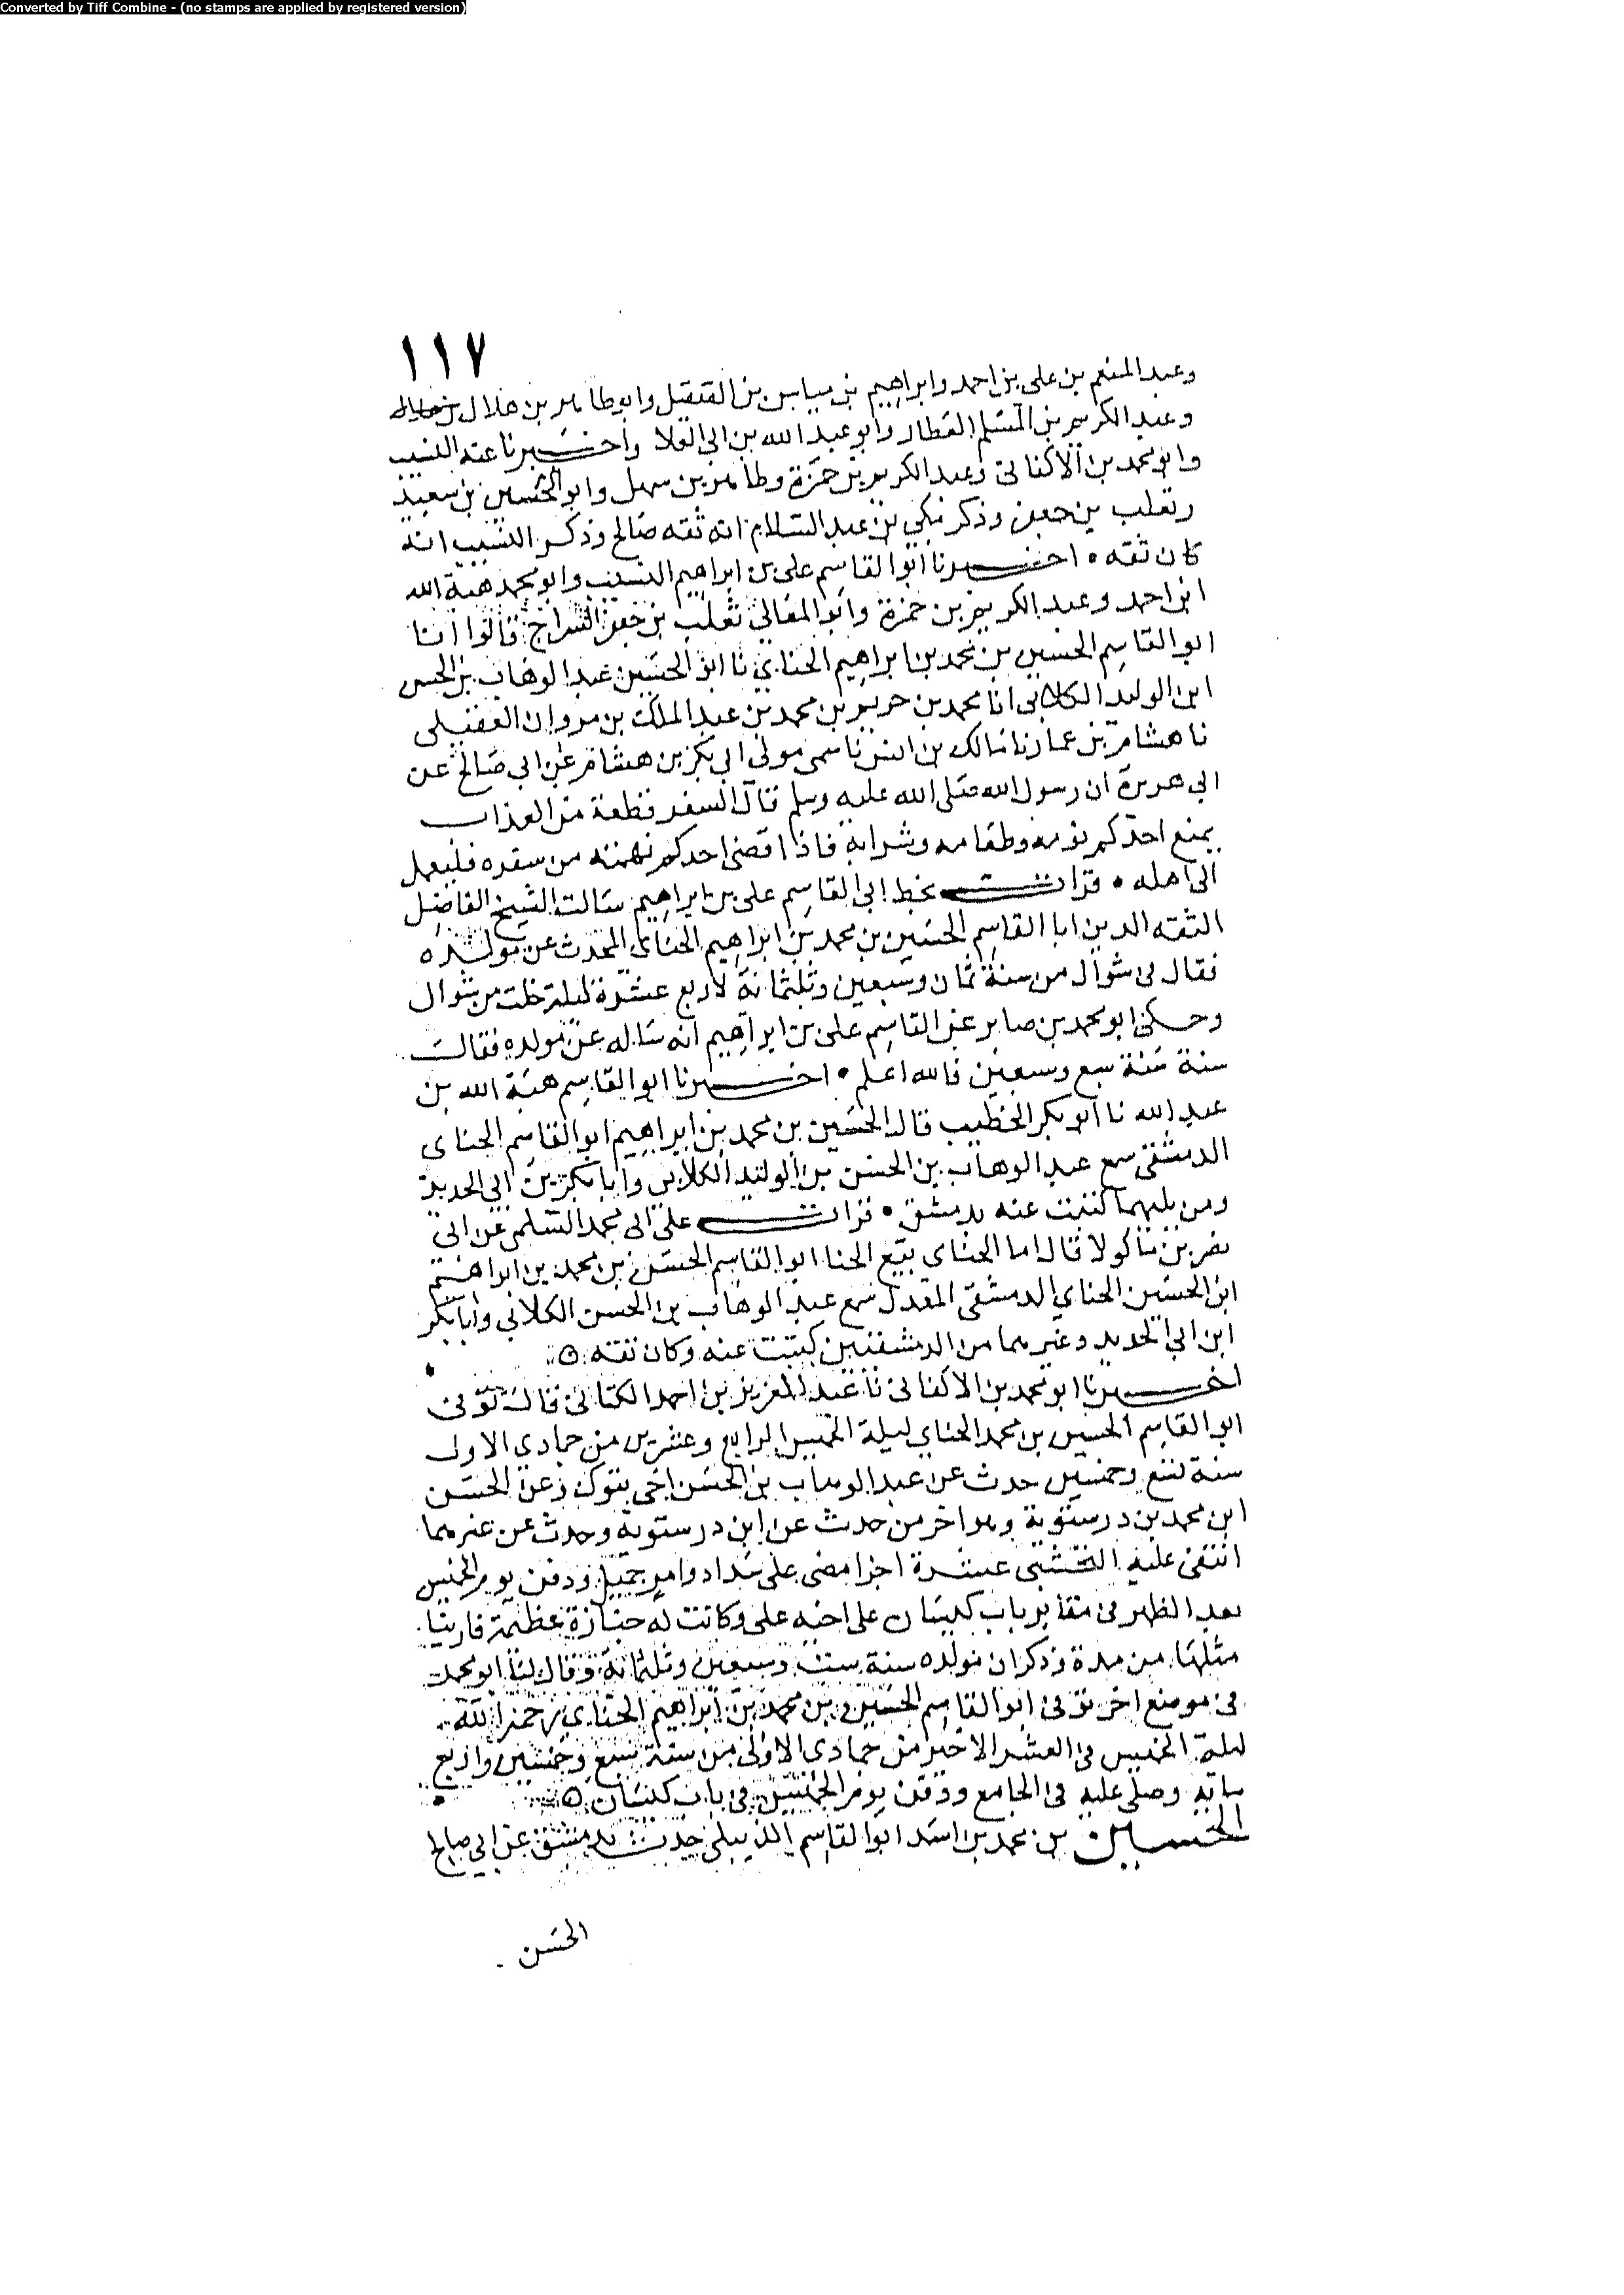 Converted by Tiff Combine - (no stamps are applied by registered version)
١١٧
وعبد المنعم بن على بن احمد وابراهيم بن مياس بن القنقيل وابوطاهر بن هلال
وعبد الكريم بن المسلم العطار وابو عبد الله بن ابى العلا واخبرنا عنه النسيب
وابو محمد بن الاكفانى وعبد الكريم بن حمزة وطاهر بن سهل وابو الحسين بن سعيد
وتعلب بن جعفر وذكر مكي بن عبد السلام انه ثقه صالح وذكر النسيب انه
كان ثقه • اخبرنا ابو القاسم على بن ابراهيم النسيب وابو محمد هبة الله
ابن احمد وعبد الكريم بن حمزة وابو المعالى ثعلب بن جعفر السراج قالوا انا
ابو القاسم الحسين بن محمد بن ابراهيم الحناي نا ابو الحسين عبد الوهاب بن الحسن
ابن الوليد الكلابى انا محمد بن خريم بن محمد بن عبد الملك بن مروان العقيلى
نا هشام بن عمار نا مالك بن انس نا سمى مولى ابى بكر بن هشام عن ابى صالح عن
ابي هريرة ان رسول الله صلى الله عليه وسلم قال السفر قطعة من العذاب
يمنع احدكم نومه وطعامه وشرابه فاذا قضى احدكم نهمته من سفره فليعجل
الى اهله • قرات بخط ابى القاسم على بن ابراهيم سالت الشيخ الفاضل
الثقه الدين ابا القاسم الحسين بن محمد بن ابراهيم الحناى المحدث عن مولده
فقال فى شوال من سنة ثمان وسبعين وثلثمائة لاربع عشرة ليلة خلت من شوال
وحكى ابو محمد بن صابر عن القاسم على بن ابراهيم انه ساله عن مولده فقال
سنة سنة سبع وسبعين فالله اعلم • اخبرنا ابو القاسم هبة الله بن
عبد الله نا ابو بكر الخطيب قال الحسين بن محمد بن ابراهيم ابو القاسم الحناى
الدمشقى سمع عبد الوهاب بن الحسن بن الوليد الكلابى وابا بكر بن ابى الحديد
ومن يليهما كتبت عنه بدمشق • قرات على ابى محمد السلمى عن ابى
نصر بن ماكولا قال اما الحناى بيع الحنا ابو القاسم الحسين بن محمد بن ابراهيم
ابن الحسين الحناي الدمشقى المعدل سمع عبد الوهاب بن الحسن الكلابي وابا بكر
ابن ابي الحديد وغيرهما من الدمشقيين كتبت عنه وكان ثقه ٥
اخبرنا ابو محمد بن الاكفانى نا عبد العزيز بن احمد الكتانى قال توفى
ابو القاسم الحسين بن محمد الحناي ليلة الخميس الرابع وعشرين من جمادي الاول
سنة تسع وخمسين حدث عن عبد الوهاب بن الحسن اخى بتوك وعن الحسن
ابن محمد بن درستوية وهو اخر من حدث عن ابن درستوية وحدث عن غيرهما
انتقى عليه النخشبى عشرة اجزا مضى على سداد وامر جميل ودفن يوم الخميس
بعد الظهر فى مقابر باب كيسان على اخيه على وكانت له جنازة عظيمة فا رينا
مثلها من مدة وذكر ان مولده سنة ست وسبعين وثلثمائة وقال لنا ابو محمد
فى موضع اخر توفى ابو القاسم الحسين بن محمد بن ابراهيم الحناي رحمه الله
ليلة الخميس فى العشر الاخير من جمادى الاولى من سنة تسع وخمسين واربع
مائه وصلى عليه فى الجامع ودفن يوم الخميس فى باب كيسان ٥
الحسين بن محمد بن اسد ابو القاسم الديبلى حدث بدمشق عن ابى صالح
الحسن